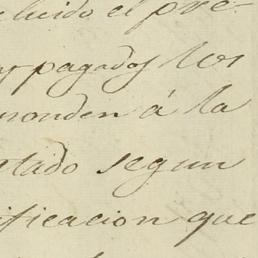 cluido el pre-
os pagados los
sponden á la
ntado segun
ificacion que